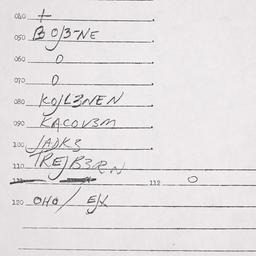 040 +
050 BOJ3-NE
060 0
070 0
080 KOJL3NEN
090 KACOV3M
100 JADK3
110 TREJB3RN
112 0
120 OHO/